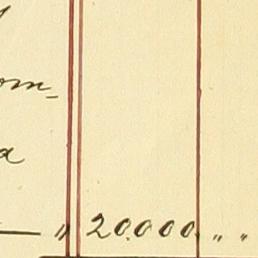 om-
a
— " 20.000. " "